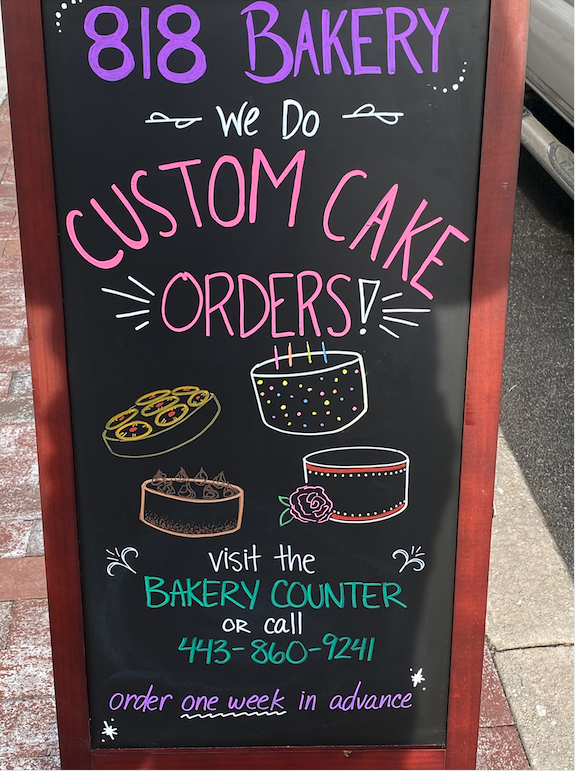 818 BAKERY
We Do
CUSTOM CAKE
ORDERS!
visit the
BAKERY COUNTER
OR call
443-860-9241
order one week in advance